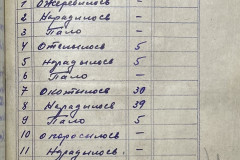 1 Ожеребилось -
2 Народилось -
3 Пало -
4 Отелилось 5
5 Народилось 5
6 Пало -
7 Окотилось 30
8 Народилось 39
9 Пало 5
10 Опоросилось -
11 Народилось -